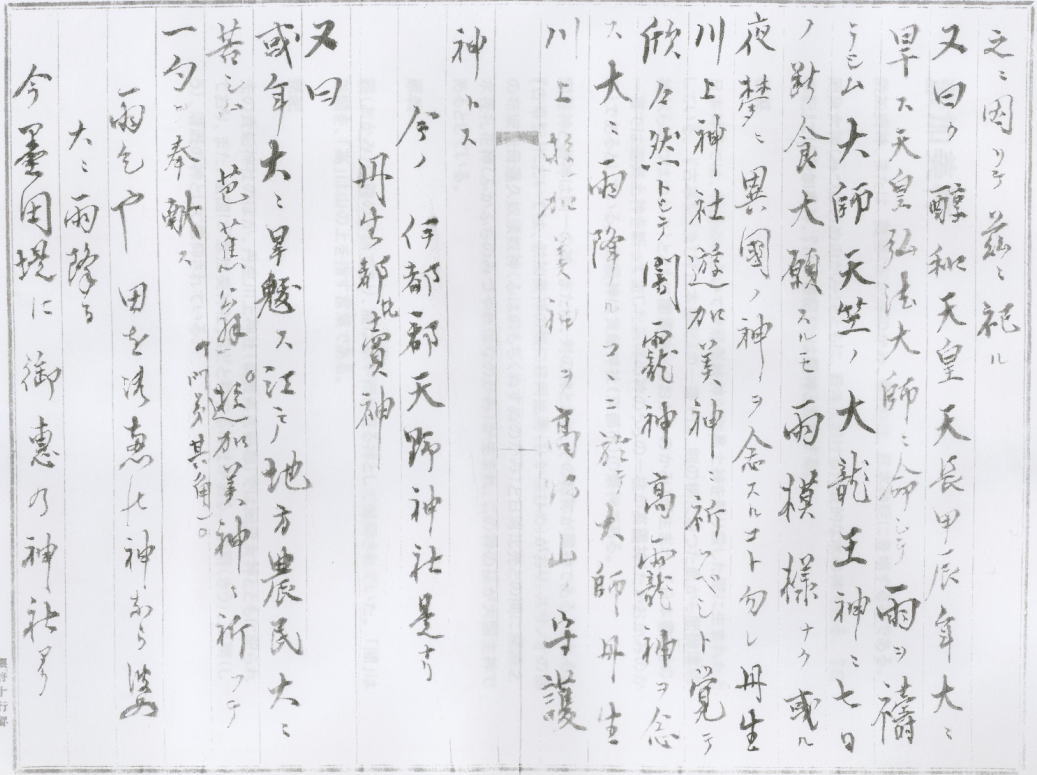 之ニ因リテ茲ニ祀ル
又曰ク 醇和天皇天長甲辰年大ニ
旱ス天皇弘法大師ニ命シテ雨ヲ禱
ラシム大師天竺ノ大龍王神ニ七日
ノ断食大願スルモ雨模様ナク或ル
夜夢ニ異國ノ神ヲ念スルコト勿レ丹生
川上神社遊加美神ニ祈ルベシト覚テ
欣々然トシテ闇龗神高龗神ヲ念
ス大ニ雨降ルコヽニ於テ大師丹生
川上遊加美神ヲ高野山守護
神トス
今ノ伊都郡天野神社是ナリ
丹生都比賣神
又曰
或年大ニ旱魃ス江戸地方農民大ニ
苦シム 芭蕉翁 遊加美神ニ祈ツテ
(門弟其角)。
一句ヲ奉献ス
雨乞や 田を 神ならば
大ニ雨降る
今墨田堤に御惠の神社あり